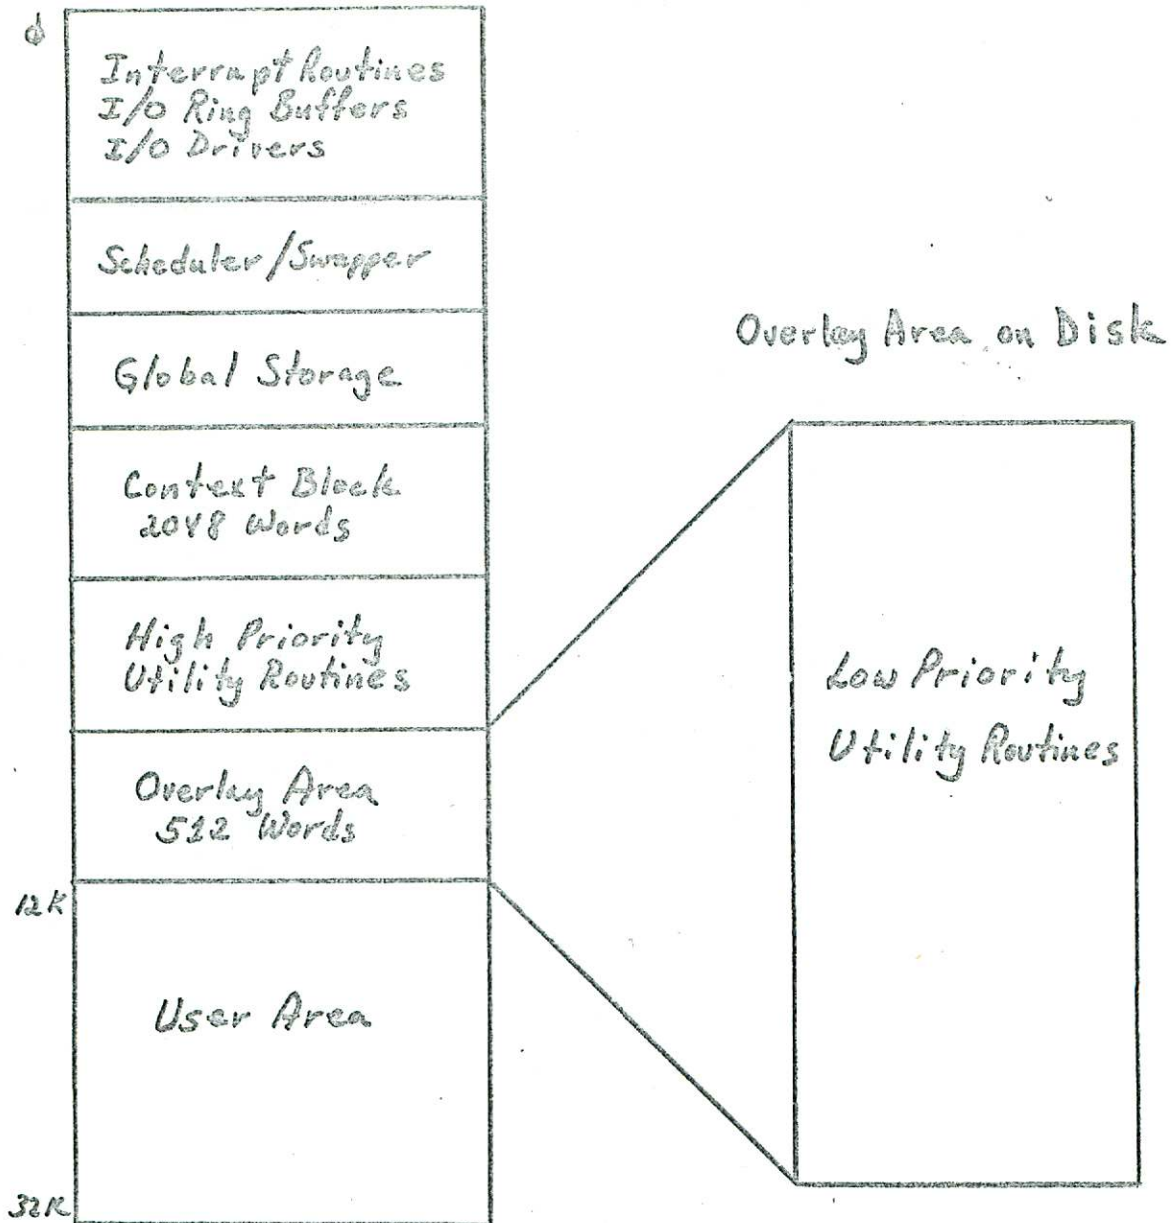 0
Interrupt Routines
I/O Ring Buffers
I/O Drivers
Scheduler/Swapper
Global Storage
Context Block
2048 Words
High Priority
Utility Routines
Overlay Area
512 Words
12K
User Area
32K
Overlay Area on Disk
Low Priority
Utility Routines